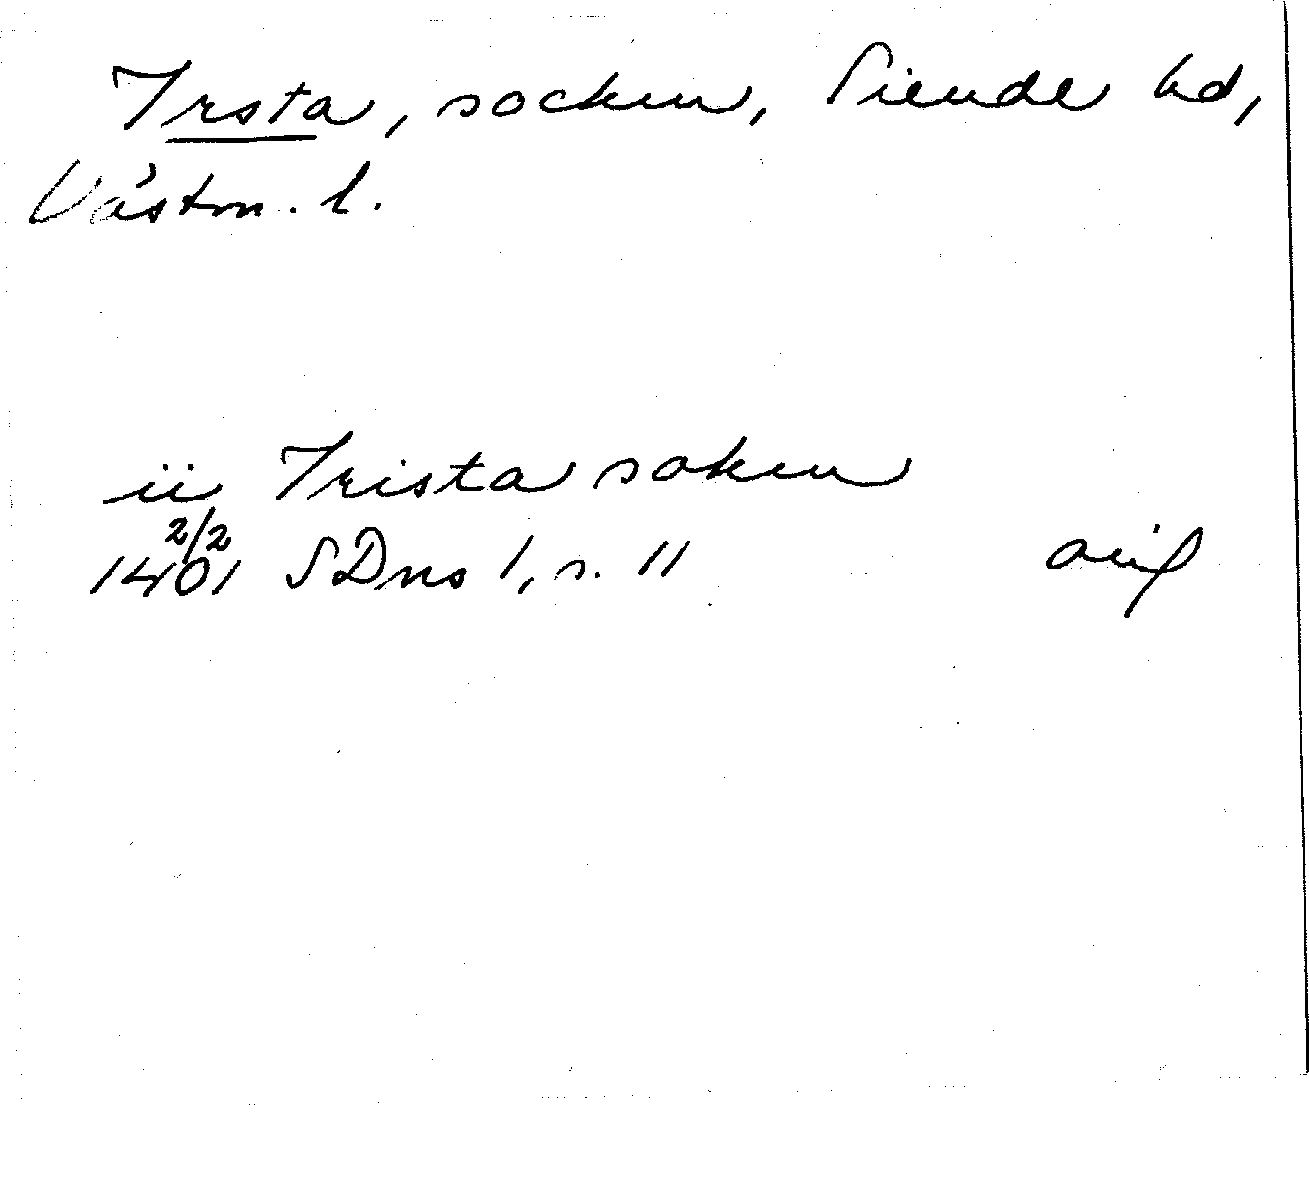 Irsta, socken, Siende hd,
Västm. l.
ii Irista soken
2/2
1401 SDns 1, s. 11